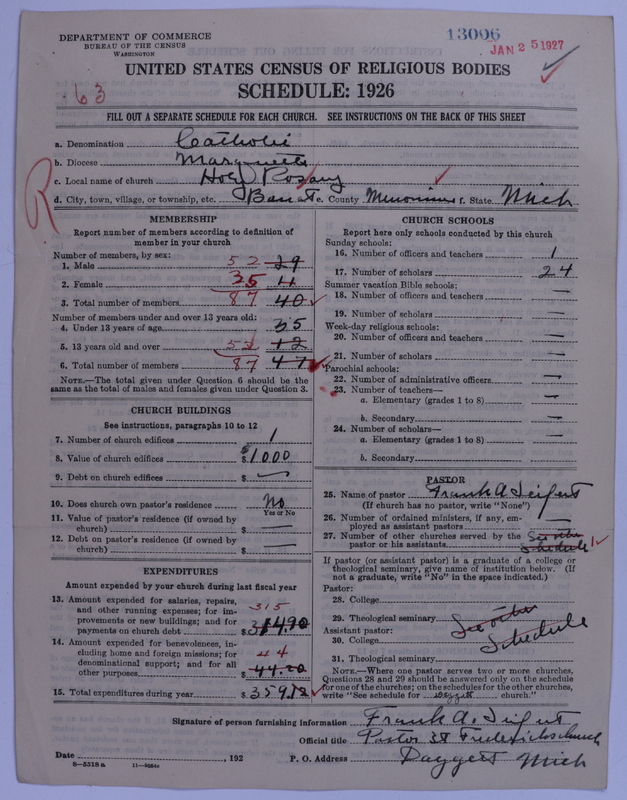 DEPARTMENT OF COMMERCE
BUREAU OF THE CENSUS
WASHINGTON
13006
JAN 25 1927
UNITED STATES CENSUS OF RELIGIOUS BODIES
63
SCHEDULE: 1926
FILL OUT A SEPARATE SCHEDULE FOR EACH CHURCH. SEE INSTRUCTIONS ON THE BACK OF THIS SHEET
a. Denomination Catholic
b. Diocese Marquette
c. Local name of church Holy Rosary
d. City, town, village, or township, etc. e. County f. State Mich
R
MEMBERSHIP
Report number of members according to definition of
member in your church
Number of members, by sex:
1. Male 52 29
2. Female 35 11
3. Total number of members 87 40
Number of members under and over 13 years old:
4. Under 13 years of age 35
5. 13 years old and over 52 12
6. Total number of members 87 47
NOTE.—The total given under Question 6 should be the
same as the total of males and females given under Question 3.
CHURCH BUILDINGS
See instructions, paragraphs 10 to 12
7. Number of church edifices 1
8. Value of church edifices $1000
9. Debt on church edifices $ —
10. Does church own pastor's residence No
Yes or No
11. Value of pastor's residence (if owned by
church) $ —
12. Debt on pastor's residence (if owned by
church) $ —
EXPENDITURES
Amount expended by your church during last fiscal year
13. Amount expended for salaries, repairs,
and other running expenses; for im-
provements or new buildings; and for
payments on church debt 315 $314.90
14. Amount expended for benevolences, in-
cluding home and foreign missions; for
denominational support; and for all
other purposes 44 $
15. Total expenditures during year $
CHURCH SCHOOLS
Report here only schools conducted by this church
Sunday schools:
16. Number of officers and teachers 1
17. Number of scholars 24
Summer vacation Bible schools:
18. Number of officers and teachers —
19. Number of scholars —
Week-day religious schools:
20. Number of officers and teachers —
21. Number of scholars —
Parochial schools:
22. Number of administrative officers —
23. Number of teachers—
a. Elementary (grades 1 to 8) —
b. Secondary —
24. Number of scholars—
a. Elementary (grades 1 to 8) —
b. Secondary —
PASTOR
25. Name of pastor Frank A Seifert
(If church has no pastor, write "None")
26. Number of ordained ministers, if any, em-
ployed as assistant pastors —
27. Number of other churches served by the
pastor or his assistants See other Schedule 1
If pastor (or assistant pastor) is a graduate of a college or
theological seminary, give name of institution below. (If
not a graduate, write "No" in the space indicated.)
Pastor:
28. College
29. Theological seminary See other
Assistant pastor:
30. College Schedule
31. Theological seminary
NOTE.—Where one pastor serves two or more churches,
Questions 28 and 29 should be answered only on the schedule
for one of the churches; on the schedules for the other churches,
write "See schedule for Daggett church."
Signature of person furnishing information Frank A. Seifert
Official title Pastor St Fredericks church
Date , 192 P. O. Address Daggett Mich
8—5518 a